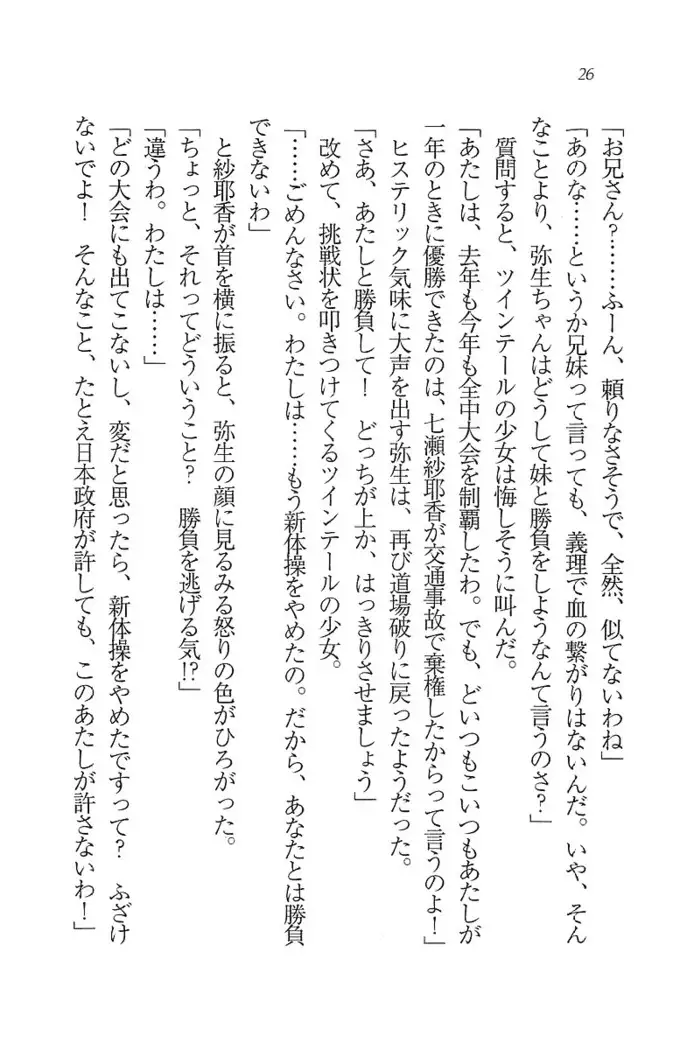 26
「お兄さん?………ふーん、頼りなさそうで、全然、似てないわね」
「あのな……というか兄妹って言っても、義理で血の繋がりはないんだ。いや、そん
なことより、弥生ちゃんはどうして妹と勝負をしようなんて言うのさ?」
質問すると、ツインテールの少女は悔しそうに叫んだ。
「あたしは、去年も今年も全中大会を制覇したわ。でも、どいつもこいつもあたしが
一年のときに優勝できたのは、七瀬紗耶香が交通事故で棄権したからって言うのよ!」
ヒステリック気味に大声を出す弥生は、再び道場破りに戻ったようだった。
「さあ、あたしと勝負して! どっちが上か、はっきりさせましょう」
改めて、挑戦状を叩きつけてくるツインテールの少女。
「……ごめんなさい。わたしは……もう新体操をやめたの。だから、あなたとは勝負
できないわ」
と紗耶香が首を横に振ると、弥生の顔に見るみる怒りの色がひろがった。
「ちょっと、それってどういうこと? 勝負を逃げる気!?」
「違うわ。わたしは……」
「どの大会にも出てこないし、変だと思ったら、新体操をやめたですって? ふざけ
ないでよ! そんなこと、たとえ日本政府が許しても、このあたしが許さないわ!」